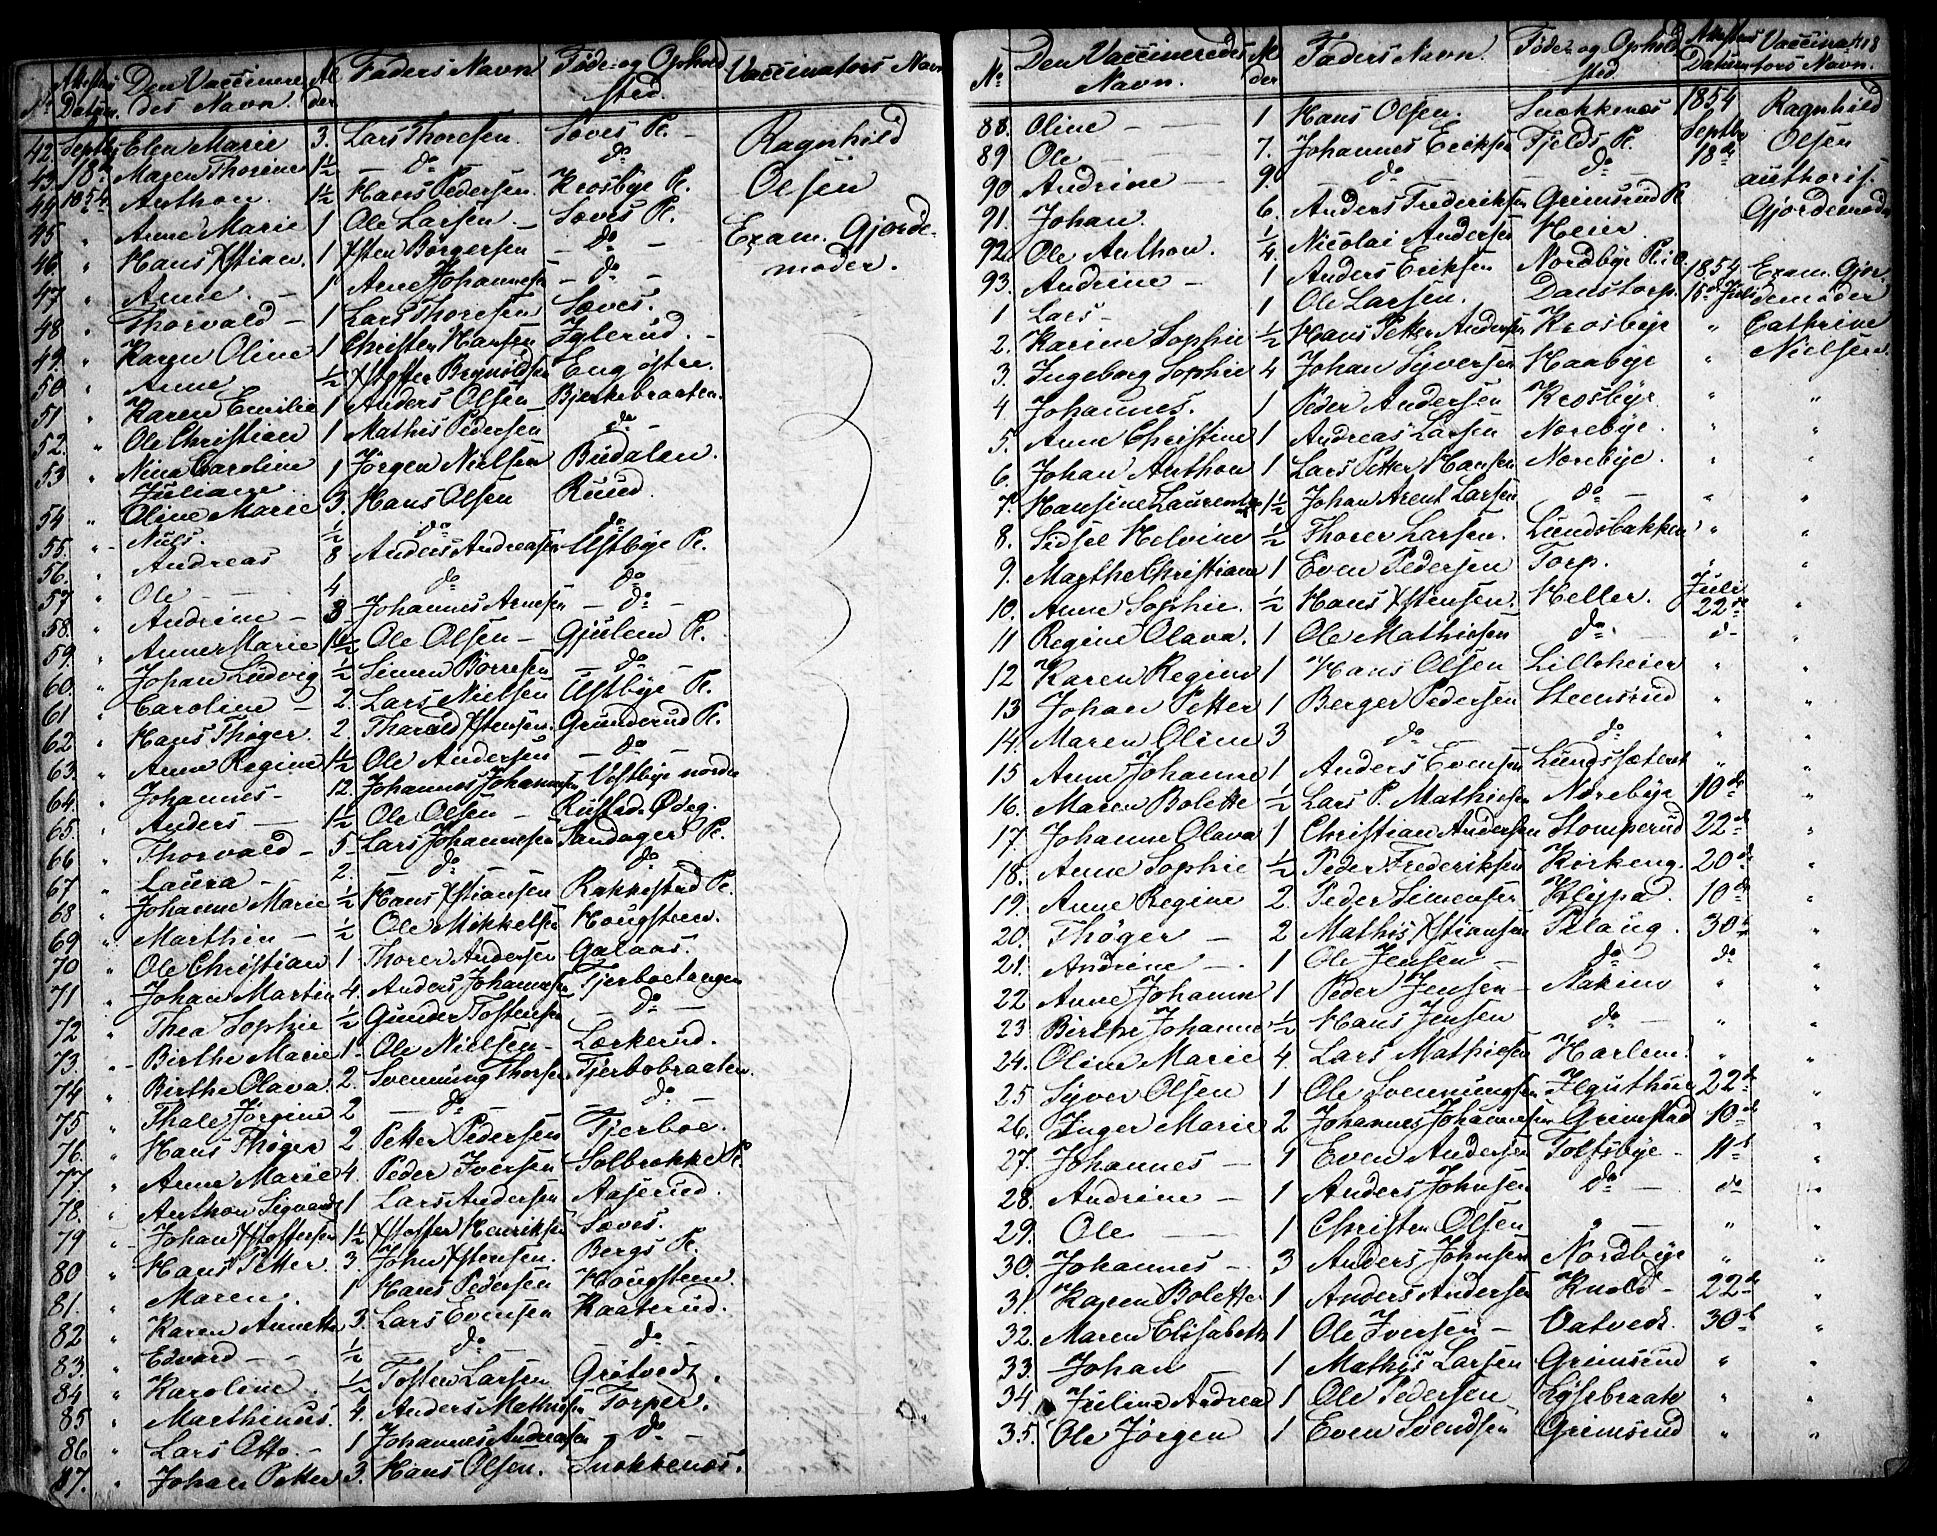 No Attestens Datum. Den Vaccinere Al Faders Navn Føde- og Ophold Vaccinators Navn
des Navn. der sted.
42. Septbr Elen Marie 3. Lars Thoresen Sæves Pl. – Ragnhild
43. 18de Maren Thorine 1½ – do – do Olsen
44. 1854. Anthon. 1½ Hans Pedersen. Krosbye Pl. Exam. Gjorde-
45 " Anne Marie 1 Ole Larsen – Sæves Pl. – moder.
46. " Hans Xstian. 1 Ysten Børgersen – do –
47 " Anne. – 1 Arne Johannesen – do –
48 " Thorvald – 1 Lars Thoresen Sæves.
49. " Karen Oline 1 Christen Hansen Iglerud. –
50. " Anne ½ Xstoffer Brynildsen Eng østre.
51 " Karen Emilie 1 Anders Olsen Bjerkebraaten.
52. " Ole Christian 1 Mathis Pedersen do
53 " Nina Caroline 1 Jørgen Nielsen Budalen.
Juliane
54 " Oline Marie 3. Hans Olsen Ruud.
55. " Niels. ½ do do
56. " Andreas 8 Anders Andreasen Ustbye Pl.
57 " Ole – – 4 do do
58. " Andrine – 3 Johannes Arnesen – do –
59. " Anne Marie 1½ Ole Olsen – Gjulem Pl.
60. " Johan Ludvig ½ Simen Børresen do
61 " Caroline – 2. Lars Nielsen Ustbye Pl.
62 " Hans Thøger. 2. Tharald Xstensen. Grunderud Pl.
63. " Anne Regine 1½ Ole Andersen – do –
64. " Johannes – 12. Johannes Johannesen Ustbye nordre
65. " Anders – 1½ Ole Olsen – Rustad. Ødeg.
66 " Thorvald – 5. Lars Johannesen Sandager Pl.
67 " Laura – 2. – do – do
68 " Johanne Marie ½ Hans Xstiansen Rakkestad Pl.
69 " Marthin – ½ Ole Mikkelsen Hougsteen.
70 " Ole Christian 1 Thorer Andersen Galaas.
71 " Johan Martin 4. Anders Johannesen Tjerboetangen
72 " Thea Sophie ½ Gunder Tostensen – do –
73. " Birthe Marie 1. Ole Nielsen – Lærkerud.
74 " Birthe Olava. 2. Svennung Thorsen Tjerbobraaten.
75 " Thale Jørgine 2 – do – – do –
76. " Hans Thøger 2 Petter Pedersen Tjerboe.
77 " Anne Marie 4. Peder Iversen Solbrække Pl.
78. " Anthon Sigvard 1 Lars Andersen Aaserud.
79 " Johan Xstoffersen 1½ Xstoffer Henriksen Sæves.
80 " Hans Petter. 3. John Xstensen. Bergs Pl.
81. " Maren. 1 Hans Pedersen Hougsteen.
82 " Karen Annette 3. Lars Evensen Kaaterud.
83. " Edvard – – ½ do do
84 " Karoline. ½ Tosten Larsen Grøtvedt.
85 " Marthinus. 4. Anders Mathisen Torper.
86 " Lars Otto. – 1 Johannes Andreasen – do –
87. " Johan Petter 3. Hans Olsen. Snokkenæs.
No Den Vaccineredes Al Faders Navn. Føde- og Ophold Attestens Vaccina 118
Navn. der sted. Datum tors Navn.
88. Oline – – 1 Hans Olsen. Snokkenæs 1854 Ragnhild
89 Ole – – 7. Johannes Eriksen Fjelds Pl. Septbr Olsen
90 Andrine – 9. do – do – 18de authoris.
91. Johan. 6. Anders Frederiksen Grimsrud Pl. Gjordemoder
92. Ole Anthon. ¼ Nicolai Andersen Heier.
93. Andrine – 1 Anders Eriksen Nordbye Pl.
1 Lars – 1 Ole Larsen. Danstorp. 1854 Exam. Gjor-
2. Karine Sophie ½ Hans Petter Andersen Krosbye " demoder
3. Ingeborg Sophie 4 Johan Syversen Haabye " Cathrine
4. Johannes. 1 Peder Andersen Krosbye " Nielsen.
5. Anne Christine 1 Andreas Larsen Norebye. " "
6. Johan Anthon 1 Lars Petter Hansen Norebye. " "
7. Hansine Laurentze 1½ Johan Arent Larsen do – " "
8. Sidsel Helvine ½ Thorer Larsen. Lundsbakken " "
9. Marthe Christiane 1 Even Pedersen Torp. " "
10. Anne Sophie. ½ Hans Xstensen. Heller. Juli 22de "
11 Regine Olava. 1 Ole Mathisen do d– "
12 Karen Regine 1 Hans Olsen Lilleheier " "
13 Johan Petter 1 Berger Pedersen Steensrud " "
14. Maren Oline 3 do do " "
15 Anne Johanne 1 Anders Evensen Lundssæteret " "
16. Maren Bolette ½ Lars P. Mathisen Norebye 10de "
17. Johanne Olava 1 Christian Andersen Stomperud 22de "
18. Anne Sophie ½ Peder Frederiksen Kirkeng. 20de "
19. Anne Regine 2. Peder Simensen Kleppa. 10de "
20. Thøger – 2 Mathis Xstiansen Pilaug. 30te "
21. Andrine – 1 Ole Jensen – do do "
22 Anne Johanne 1 Peder Jensen – Nakim " "
23 Birthe Johanne ½ Hans Jensen do – " "
24. Oline Marie 4. Lars Mathisen Harlem. " "
25 Syver Olsen 1 Ole Svennungsen 22de "
26. Inger Marie 2 Johannes Johannesen Grimstad 10de "
27. Johannes – 1 Even Andersen Tolfsbye – 11te "
28. Andrine – 1 Anders Johnsen do – do "
29. Ole – 1 Christen Olsen " – " "
30. Johannes – 3 Anders Johnsen Nordbye " "
31. Karen Bolette 1 Anders Andersen Knold – 22de "
32. Maren Elisabeth 1 Ole Iversen – Vatvedt. 30te "
33. Johan – 1 Mathis Larsen Grimsrud " "
34. Juline Andrea 1 Ole Pedersen Lysebraate " "
35. Ole Jørgen 1 Even Svendsen Grimsrud " "